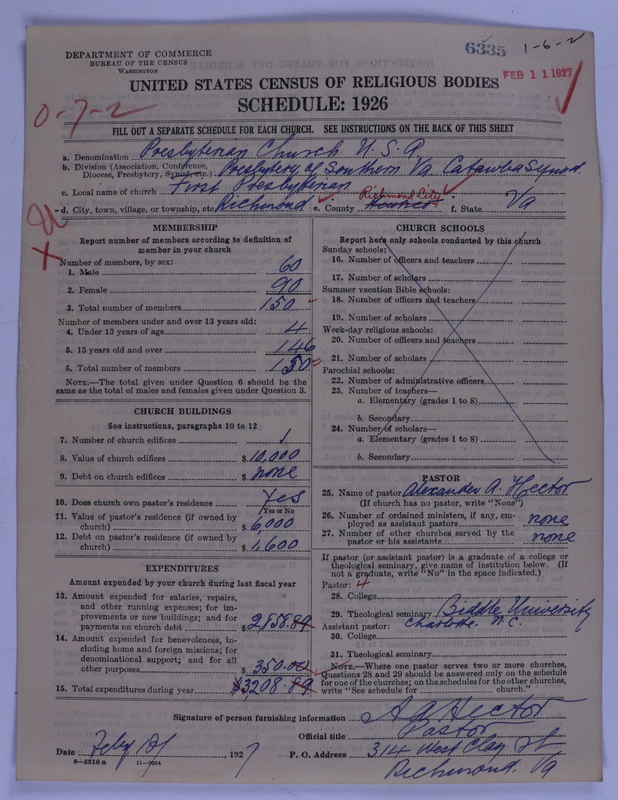 DEPARTMENT OF COMMERCE
BUREAU OF THE CENSUS
WASHINGTON
6335
1-6-2
FEB 11 1927
UNITED STATES CENSUS OF RELIGIOUS BODIES
SCHEDULE: 1926
0-7-2
FILL OUT A SEPARATE SCHEDULE FOR EACH CHURCH. SEE INSTRUCTIONS ON THE BACK OF THIS SHEET
a. Denomination Presbyterian Church U.S.A.
b. Division (Association, Conference, Diocese, Presbytery, Synod, etc.) Presbytery of Southern Va Catawba Synod
c. Local name of church First Presbyterian
d. City, town, village, or township, etc. Richmond e. County Richmond City Henrico f. State Va
MEMBERSHIP
Report number of members according to definition of
member in your church
Number of members, by sex:
1. Male 60
2. Female 90
3. Total number of members 150
Number of members under and over 13 years old:
4. Under 13 years of age 4
5. 13 years old and over 146
6. Total number of members 150
NOTE.—The total given under Question 6 should be
same as the total of males and females given under Question 3.
CHURCH BUILDINGS
See instructions, paragraphs 10 to 12
7. Number of church edifices 1
8. Value of church edifices $ 10,000
9. Debt on church edifices $ none
10. Does church own pastor's residence Yes
Yes or No
11. Value of pastor's residence (if owned by
church) $ 6,000
12. Debt on pastor's residence (if owned by
church) $ 1,600
EXPENDITURES
Amount expended by your church during last fiscal year
13. Amount expended for salaries, repairs,
and other running expenses; for im-
provements or new buildings; and for
payments on church debt $ 2,858.89
14. Amount expended for benevolences, in-
cluding home and foreign missions; for
denominational support; and for all
other purposes $ 350.00
15. Total expenditures during year $3208.89
CHURCH SCHOOLS
Report here only schools conducted by this church
Sunday schools:
16. Number of officers and teachers
17. Number of scholars
Summer vacation Bible schools:
18. Number of officers and teachers
19. Number of scholars
Week-day religious schools:
20. Number of officers and teachers
21. Number of scholars
Parochial schools:
22. Number of administrative officers
23. Number of teachers—
a. Elementary (grades 1 to 8)
b. Secondary
24. Number of scholars—
a. Elementary (grades 1 to 8)
b. Secondary
PASTOR
25. Name of pastor Alexander A. Hector
(If church has no pastor, write "None")
26. Number of ordained ministers, if any, em-
ployed as assistant pastors none
27. Number of other churches served by the
pastor or his assistants none
If pastor (or assistant pastor) is a graduate of a college or
theological seminary, give name of institution below. (If
not a graduate, write "No" in the space indicated.)
Pastor: 4
28. College
29. Theological seminary Biddle University
Assistant pastor: Charlotte N.C.
30. College
31. Theological seminary
NOTE.—Where one pastor serves two or more churches,
Questions 28 and 29 should be answered only on the schedule
for one of the churches; on the schedules for the other churches,
write "See schedule for church."
Signature of person furnishing information A A Hector
Official title Pastor
Date 1927 P. O. Address 314 West Clay St
8-5518 a 11-9054 Richmond. Va